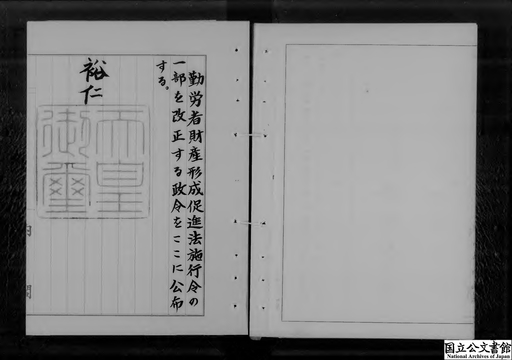 勤労者財産形成促進法施行令の
一部を改正する政令をここに公布
する。
裕仁
天皇
御璽
内
閣
国立公文書館
National Archives of Japan